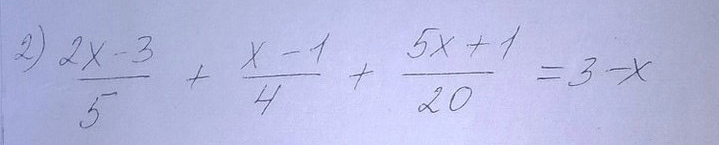 2) (2x-3)/5 + (x-1)/4 + (5x+1)/20 = 3-x